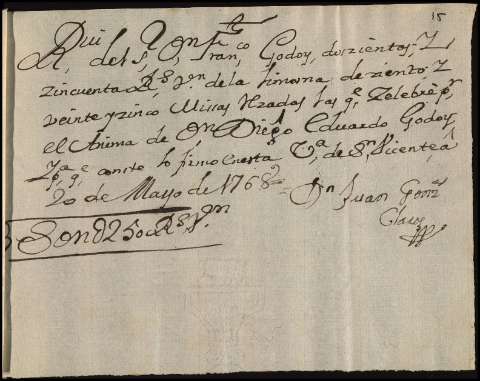 15
Rvi del Sr Dn Franco Godoy, doszientos Z
zincuenta Rs Vn de la limosna de ziento Z
veinte y zinco Missas Rzadas las qe Zelebré pr
el Anima de Dn Diego Eduardo Godoy
Y pa qe conste lo firmo en esta Va de Sn Vizente á
20 de Mayo de 1768
Dn Juan Gomz
Claros
Son 250 Rs Vn